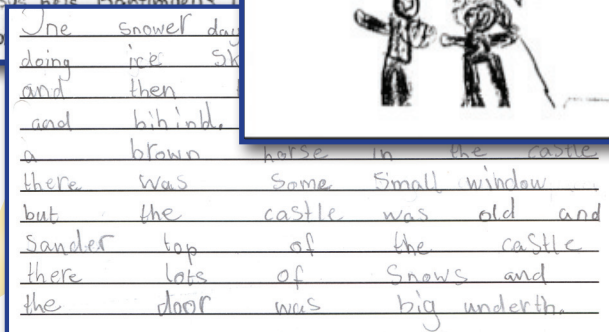 One snower day
doing ice sk
and then
and bihind,
a brown horse in the castle
there was some small window
but the castle was old and
Sander top of the castle
there lots of snows and
the door was big underth.